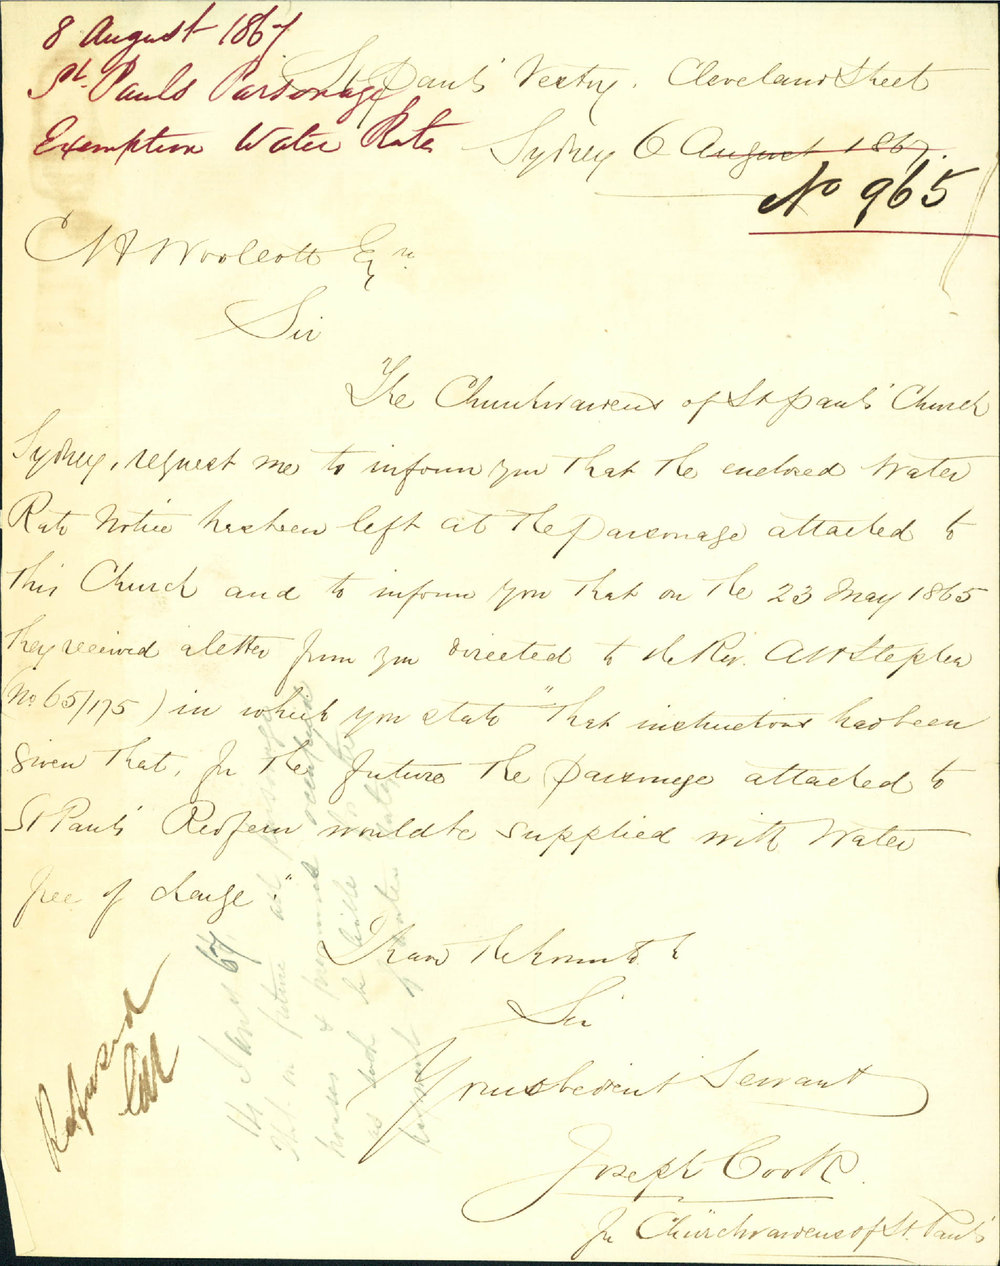 8 August 1867
St. Pauls Parsonage
Exemption Water Rates
St Pauls' Vestry. Cleveland Street
Sydney 6 August 1867.
No 965
C H Woolcott Esqre.
Sir
The Churchwardens of St Pauls' Church
Sydney, request me to inform you that the enclosed Water
Rate Notice has been left at the parsonage attached to
this Church and to inform you that on the 23 May 1865
they received a letter from you directed to the Rev. A H Stephen
(No 65/175) in which you state "that instructions had been
given that, for the future the parsonage attached to
St Pauls' Redfern would be supplied with Water
free of charge."
I have the honour to be
Sir
Your obedient Servant
Joseph Cook
for Churchwardens of St. Pauls'
Refused
67
That in future all parsonage
houses &
as such be liable to the
payment of water rates